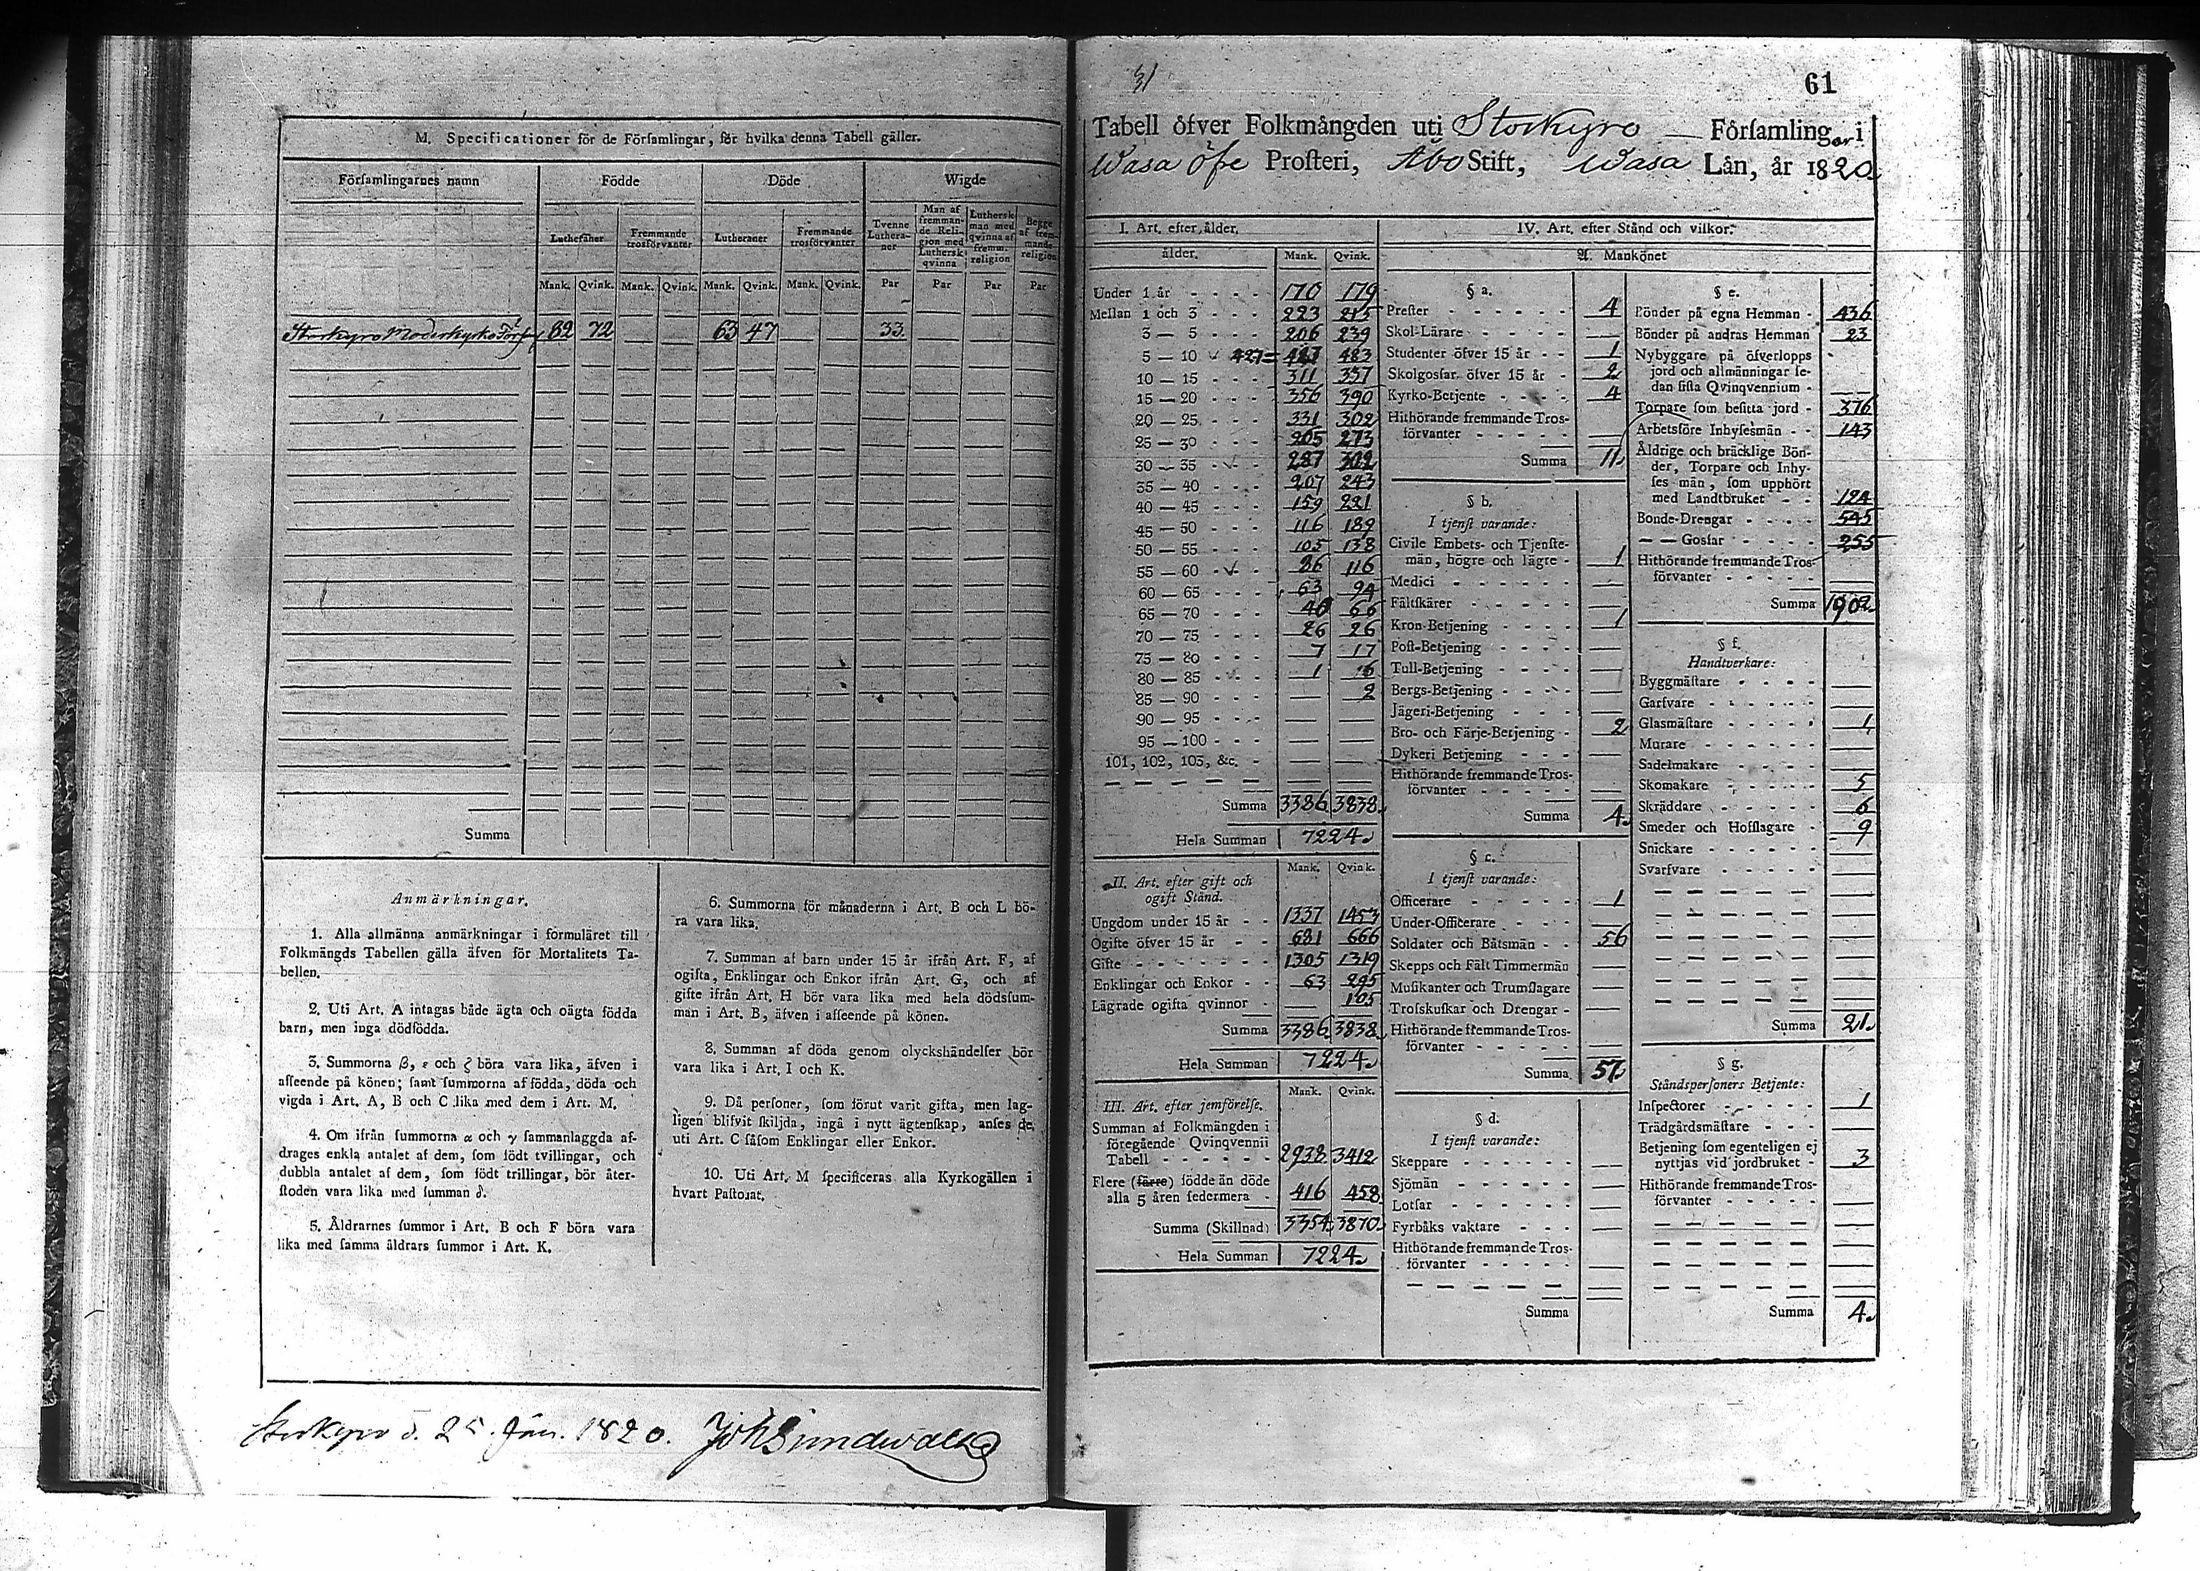 M. Specificationer för de Förſamlingar, för hvilka denna Tabell gäller.
Förſamlingarnes namn
Födde
Döde
Wigde
Lutheraner
Fremmande trosförvanter
Lutheraner
Fremmande trosförvanter
Tvenne Lutheraner
Man af fremmande Religion med Lutherſk qvinna
Lutherſk man med qvinna af fremm. religion
Begge af fremmande religion
Mank. Qvink. Mank. Qvink. Mank. Qvink. Mank. Qvink. Par Par Par Par
Storkyro Moderkyrko 82 72 63 47 33
Summa
Anmärkningar.
1. Alla allmänna anmärkningar i formuläret till
Folkmängds Tabellen gälla äfven för Mortalitets Ta-
bellen.
2. Uti Art. A intagas både ägta och oägta födda
barn, men inga dödfödda.
3. Summorna β, ε och ζ böra vara lika, äfven i
afſeende på könen; ſamt ſummorna af födda, döda och
vigda i Art. A, B och C lika med dem i Art. M.
4. Om ifrån ſummorna α och γ ſammanlaggda af-
drages enkla antalet af dem, ſom födt tvillingar, och
dubbla antalet af dem, ſom födt trillingar, bör åter-
ſtoden vara lika med ſumman δ.
5. Åldrarnes ſummor i Art. B och F böra vara
lika med ſamma åldrars ſummor i Art. K.
6. Summorna för månaderna i Art. B och L bö-
ra vara lika.
7. Summan af barn under 15 år ifrån Art. F, af
ogifta, Enklingar och Enkor ifrån Art. G, och af
gifte ifrån Art. H bör vara lika med hela dödsſum-
man i Art. B, äfven i afſeende på könen.
8. Summan af döda genom olyckshändelſer bör
vara lika i Art. I och K.
9. Då perſoner, ſom förut varit gifta, men lag-
ligen blifvit ſkiljda, ingå i nytt ägtenſkap, anſes de
uti Art. C ſåſom Enklingar eller Enkor.
10. Uti Art. M ſpecificeras alla Kyrkogällen i
hvart Paſtorat.
Storkyro d. 25. Jan. 1820. Joh Sundwall
31
61
Tabell öfver Folkmängden uti Storkyro Förſamling i
Wasa öfre Proſteri, Åbo Stift, Wasa Län, år 1820.
I. Art. efter ålder.
ålder. Mank. Qvink.
Under 1 år 170 179
Mellan 1 och 3 223 215
3 — 5 206 239
5 — 10 427 = 427 483
10 — 15 311 337
15 — 20 356 390
20 — 25 331 302
25 — 30 205 273
30 — 35 287 302
35 — 40 207 243
40 — 45 159 221
45 — 50 116 189
50 — 55 105 138
55 — 60 86 116
60 — 65 63 94
65 — 70 40 66
70 — 75 26 26
75 — 80 7 17
80 — 85 1 6
85 — 90 2
90 — 95
95 — 100
101, 102, 103, &c.
Summa 3386 3838
Hela Summan 7224
II. Art. efter gift och ogift Stånd.
Mank. Qvink.
Ungdom under 15 år 1337 1453
Ogifte öfver 15 år 681 666
Gifte 1305 1319
Enklingar och Enkor 63 295
Lägrade ogifta qvinnor 105
Summa 3386 3838
Hela Summan 7224
III. Art. efter jemförelſe.
Mank. Qvink.
Summan af Folkmängden i
föregående Qvinqvennii
Tabell 2938 3412
Flere (färre) födde än döde
alla 5 åren ſedermera 416 458
Summa (Skillnad) 3354 3870
Hela Summan 7224
IV. Art. efter Stånd och vilkor.
A. Mankönet
§ a.
Preſter 4
Skol-Lärare
Studenter öfver 15 år 1
Skolgoſſar öfver 15 år 2
Kyrko-Betjente 4
Hithörande fremmande Tros-
förvanter
Summa 11
§ b.
I tjenſt varande:
Civile Embets- och Tjenſte-
män, högre och lägre 1
Medici
Fältſkärer
Kron-Betjening 1
Poſt-Betjening
Tull-Betjening
Bergs-Betjening
Jägeri-Betjening
Bro- och Färje-Betjening 2
Dykeri Betjening
Hithörande fremmande Tros-
förvanter
Summa 4
§ c.
I tjenſt varande:
Officerare 1
Under-Officerare
Soldater och Båtsmän 56
Skepps och Fält Timmermän
Muſikanter och Trumſlagare
Troſskuſkar och Drengar
Hithörande fremmande Tros-
förvanter
Summa 57
§ d.
I tjenſt varande:
Skeppare
Sjömän
Lotſar
Fyrbåks vaktare
Hithörande fremmande Tros-
förvanter
Summa
§ e.
Bönder på egna Hemman 436
Bönder på andras Hemman 23
Nybyggare på öfverlopps
jord och allmänningar ſe-
dan ſiſta Qvinqvennium
Torpare ſom beſitta jord 376
Arbetsföre Inhyſesmän 143
Åldrige och bräcklige Bön-
der, Torpare och Inhy-
ſes män, ſom upphört
med Landtbruket 124
Bonde-Drengar 545
— — Goſſar 255
Hithörande fremmande Tros-
förvanter
Summa 1902
§ f.
Handtverkare:
Byggmäſtare
Garfvare
Glasmäſtare 1
Murare
Sadelmakare
Skomakare 5
Skräddare 6
Smeder och Hofſlagare 9
Snickare
Svarfvare
Summa 21
§ g.
Ståndsperſoners Betjente:
Inſpectorer 1
Trädgårdsmäſtare
Betjening ſom egenteligen ej
nyttjas vid jordbruket 3
Hithörande fremmande Tros-
förvanter
Summa 4